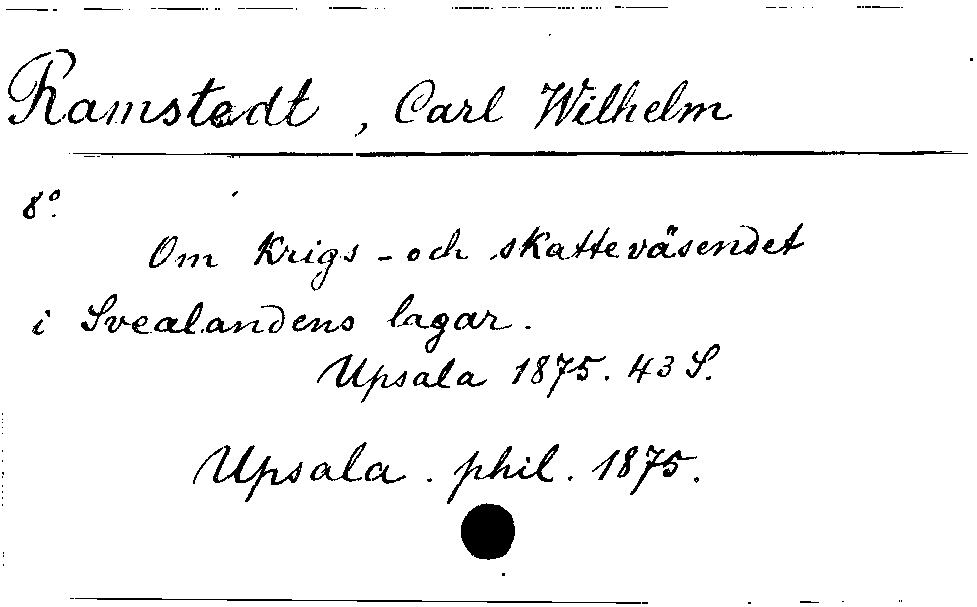 Ramstedt, Carl Wilhelm
8°.
Om Krigs- och skatteväsendet
i Svealandens lagar.
Upsala 1875. 43 S.
Upsala. phil. 1875.